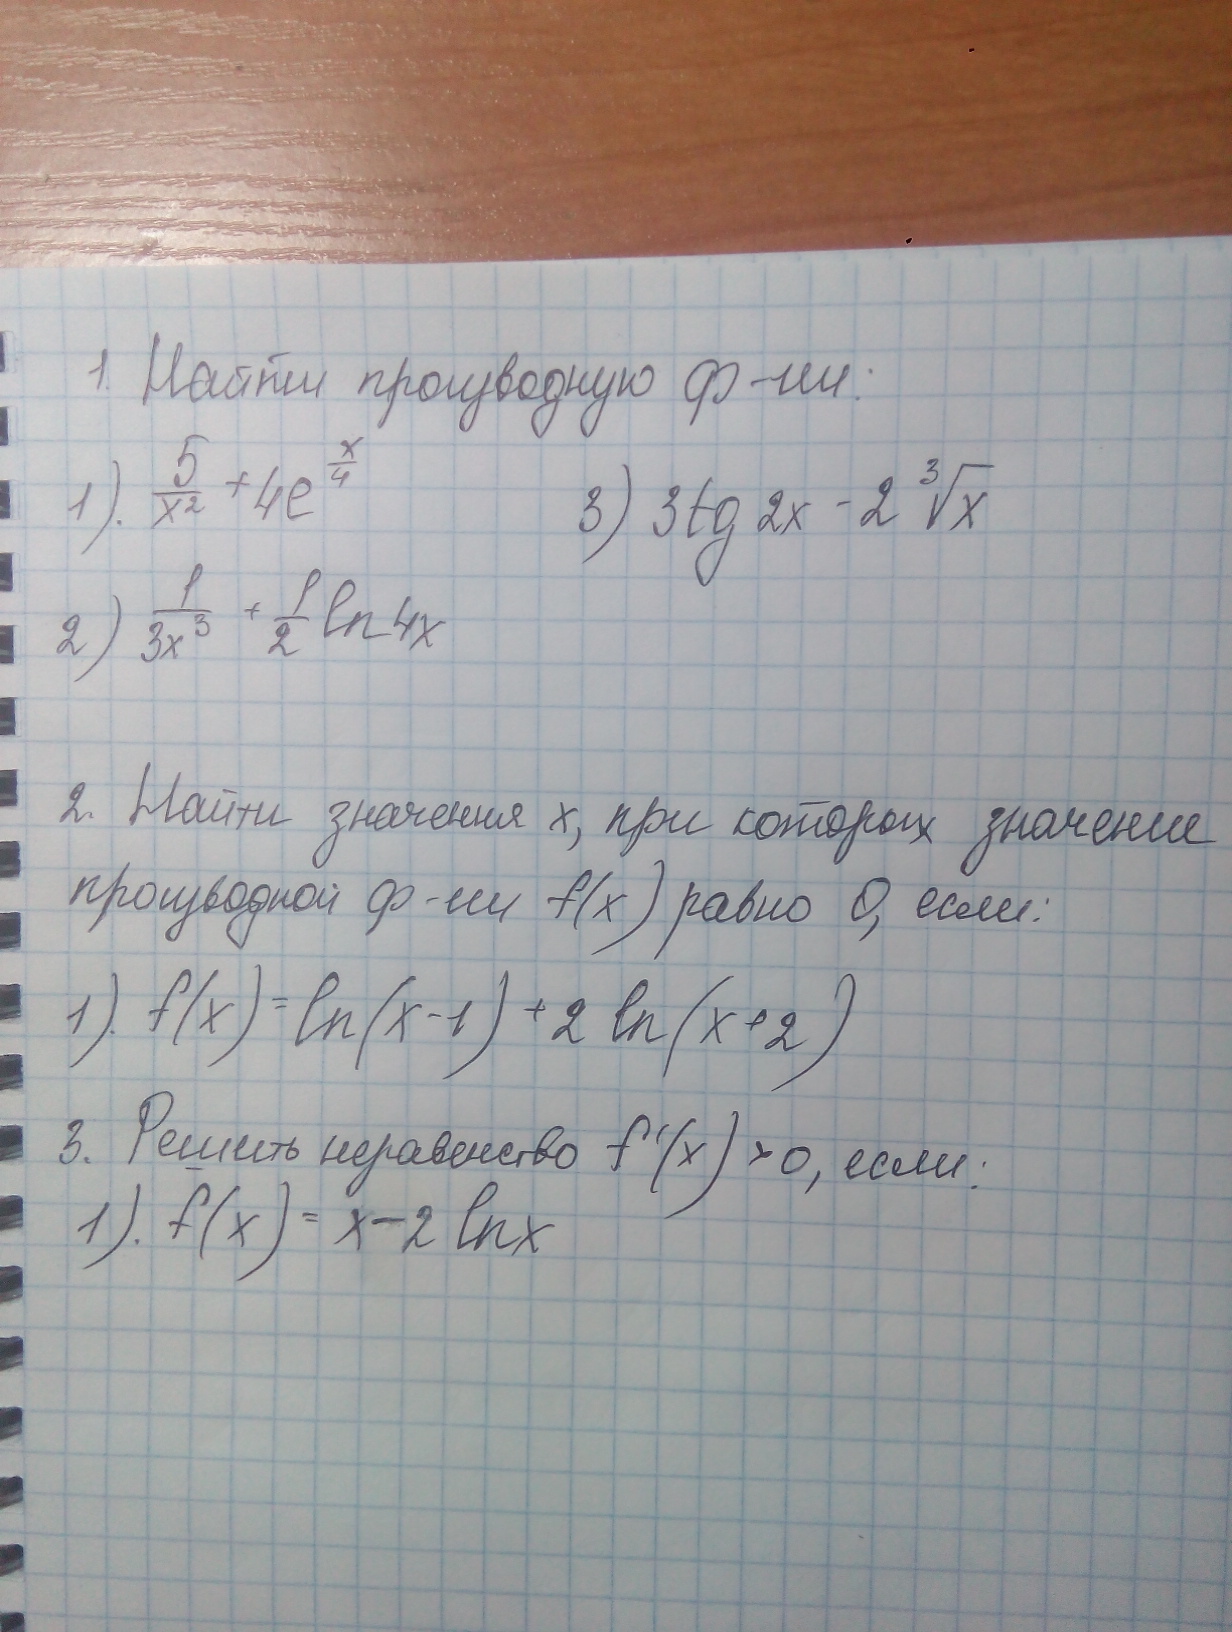 1. Найти производную ф-ии:
1). 5/x² + 4e^(x/4)
3) 3tg 2x - 2 ∛x
2) 1/(3x³) + 1/2 ln 4x
2. Найти значения x, при которых значение
производной ф-ии f(x) равно 0, если:
1). f(x) = ln(x-1) + 2 ln(x+2)
3. Решить неравенство f'(x) > 0, если:
1). f(x) = x - 2 ln x